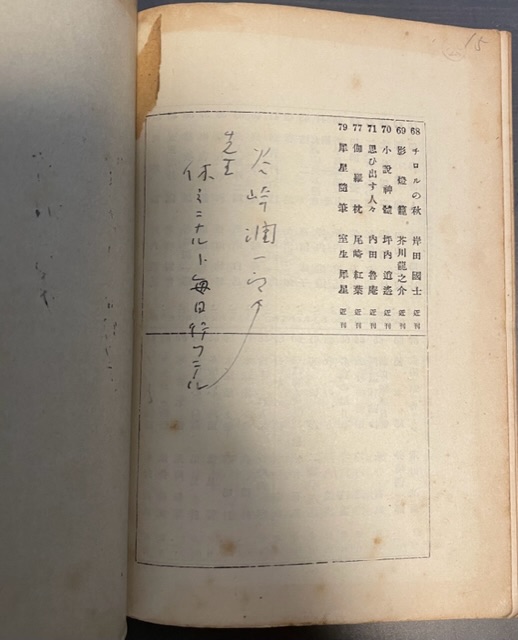 15
68 チロルの秋 岸田國士 近刊
69 影燈籠 芥川龍之介 近刊
70 小説神髓 坪內逍遙 近刊
71 思ひ出す人々 內田魯庵 近刊
77 伽羅枕 尾崎紅葉 近刊
79 犀星隨筆 室生犀星 近刊
谷崎潤一郎
休ミニナルト毎日